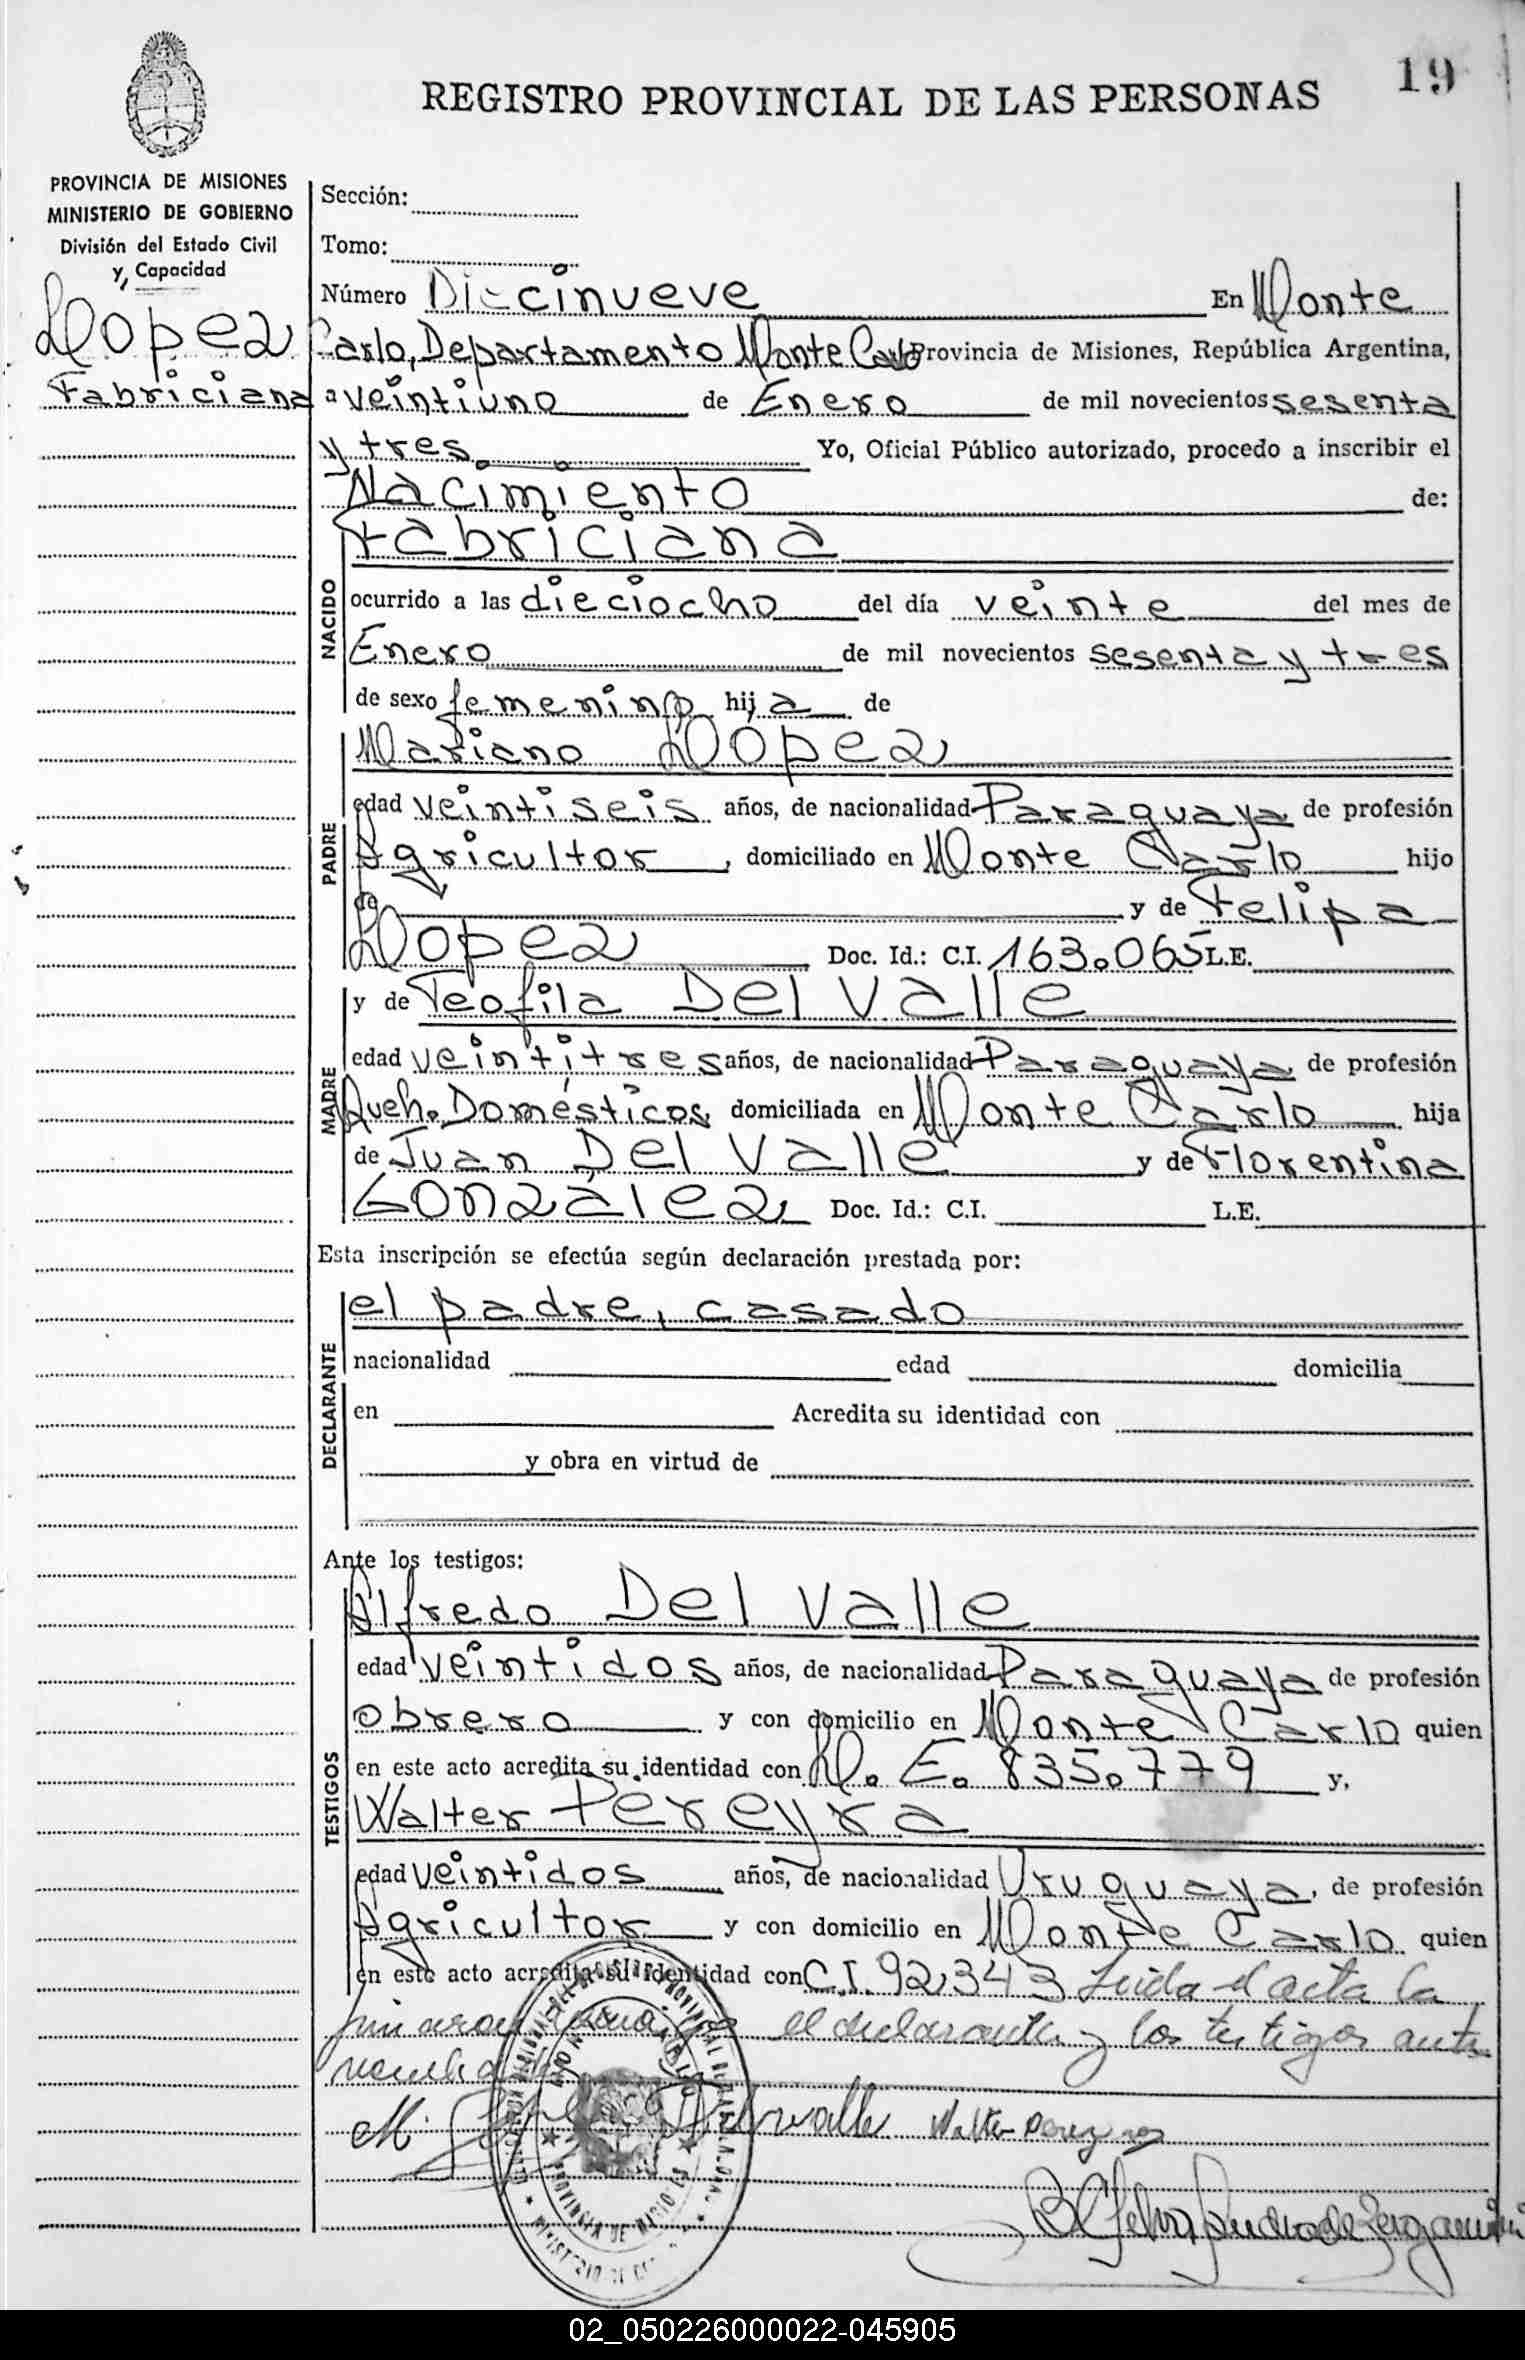 19
REGISTRO PROVINCIAL DE LAS PERSONAS
PROVINCIA DE MISIONES
MINISTERIO DE GOBIERNO
División del Estado Civil
y Capacidad
Lopez
Fabriciana
Sección:
Tomo:
Número Diecinueve En Monte
Carlo, Departamento Monte Carlo Provincia de Misiones, República Argentina,
a veintiuno de Enero de mil novecientos sesenta
y tres Yo, Oficial Público autorizado, procedo a inscribir el
Nacimiento de:
NACIDO
Fabriciana
ocurrido a las dieciocho del día veinte del mes de
Enero de mil novecientos sesenta y tres
de sexo femenino hija de
PADRE
Mariano Lopez
edad veintiseis años, de nacionalidad Paraguaya de profesión
Agricultor, domiciliado en Monte Carlo hijo
de y de Felipa
Lopez Doc. Id.: C.I. 163.065 L.E.
MADRE
y de Teofila Del Valle
edad veintitres años, de nacionalidad Paraguaya de profesión
Queh. Domésticos domiciliada en Monte Carlo hija
de Juan Del Valle y de Florentina
González Doc. Id.: C.I. L.E.
Esta inscripción se efectúa según declaración prestada por:
DECLARANTE
el padre, casado
nacionalidad edad domicilia
en Acredita su identidad con
y obra en virtud de
Ante los testigos:
TESTIGOS
Alfredo Del Valle
edad veintidos años, de nacionalidad Paraguaya de profesión
obrero y con domicilio en Monte Carlo quien
en este acto acredita su identidad con L. E. 835.779 y,
Walter Pereyra
edad veintidos años, de nacionalidad Uruguaya, de profesión
Agricultor y con domicilio en Monte Carlo quien
en este acto acredita su identidad con C.I. 92343 Leida el acta la
el declarante y los testigos ante
M. Delvalle Walter Pereyra
PROVINCIA DE MISIONES
02_050226000022-045905